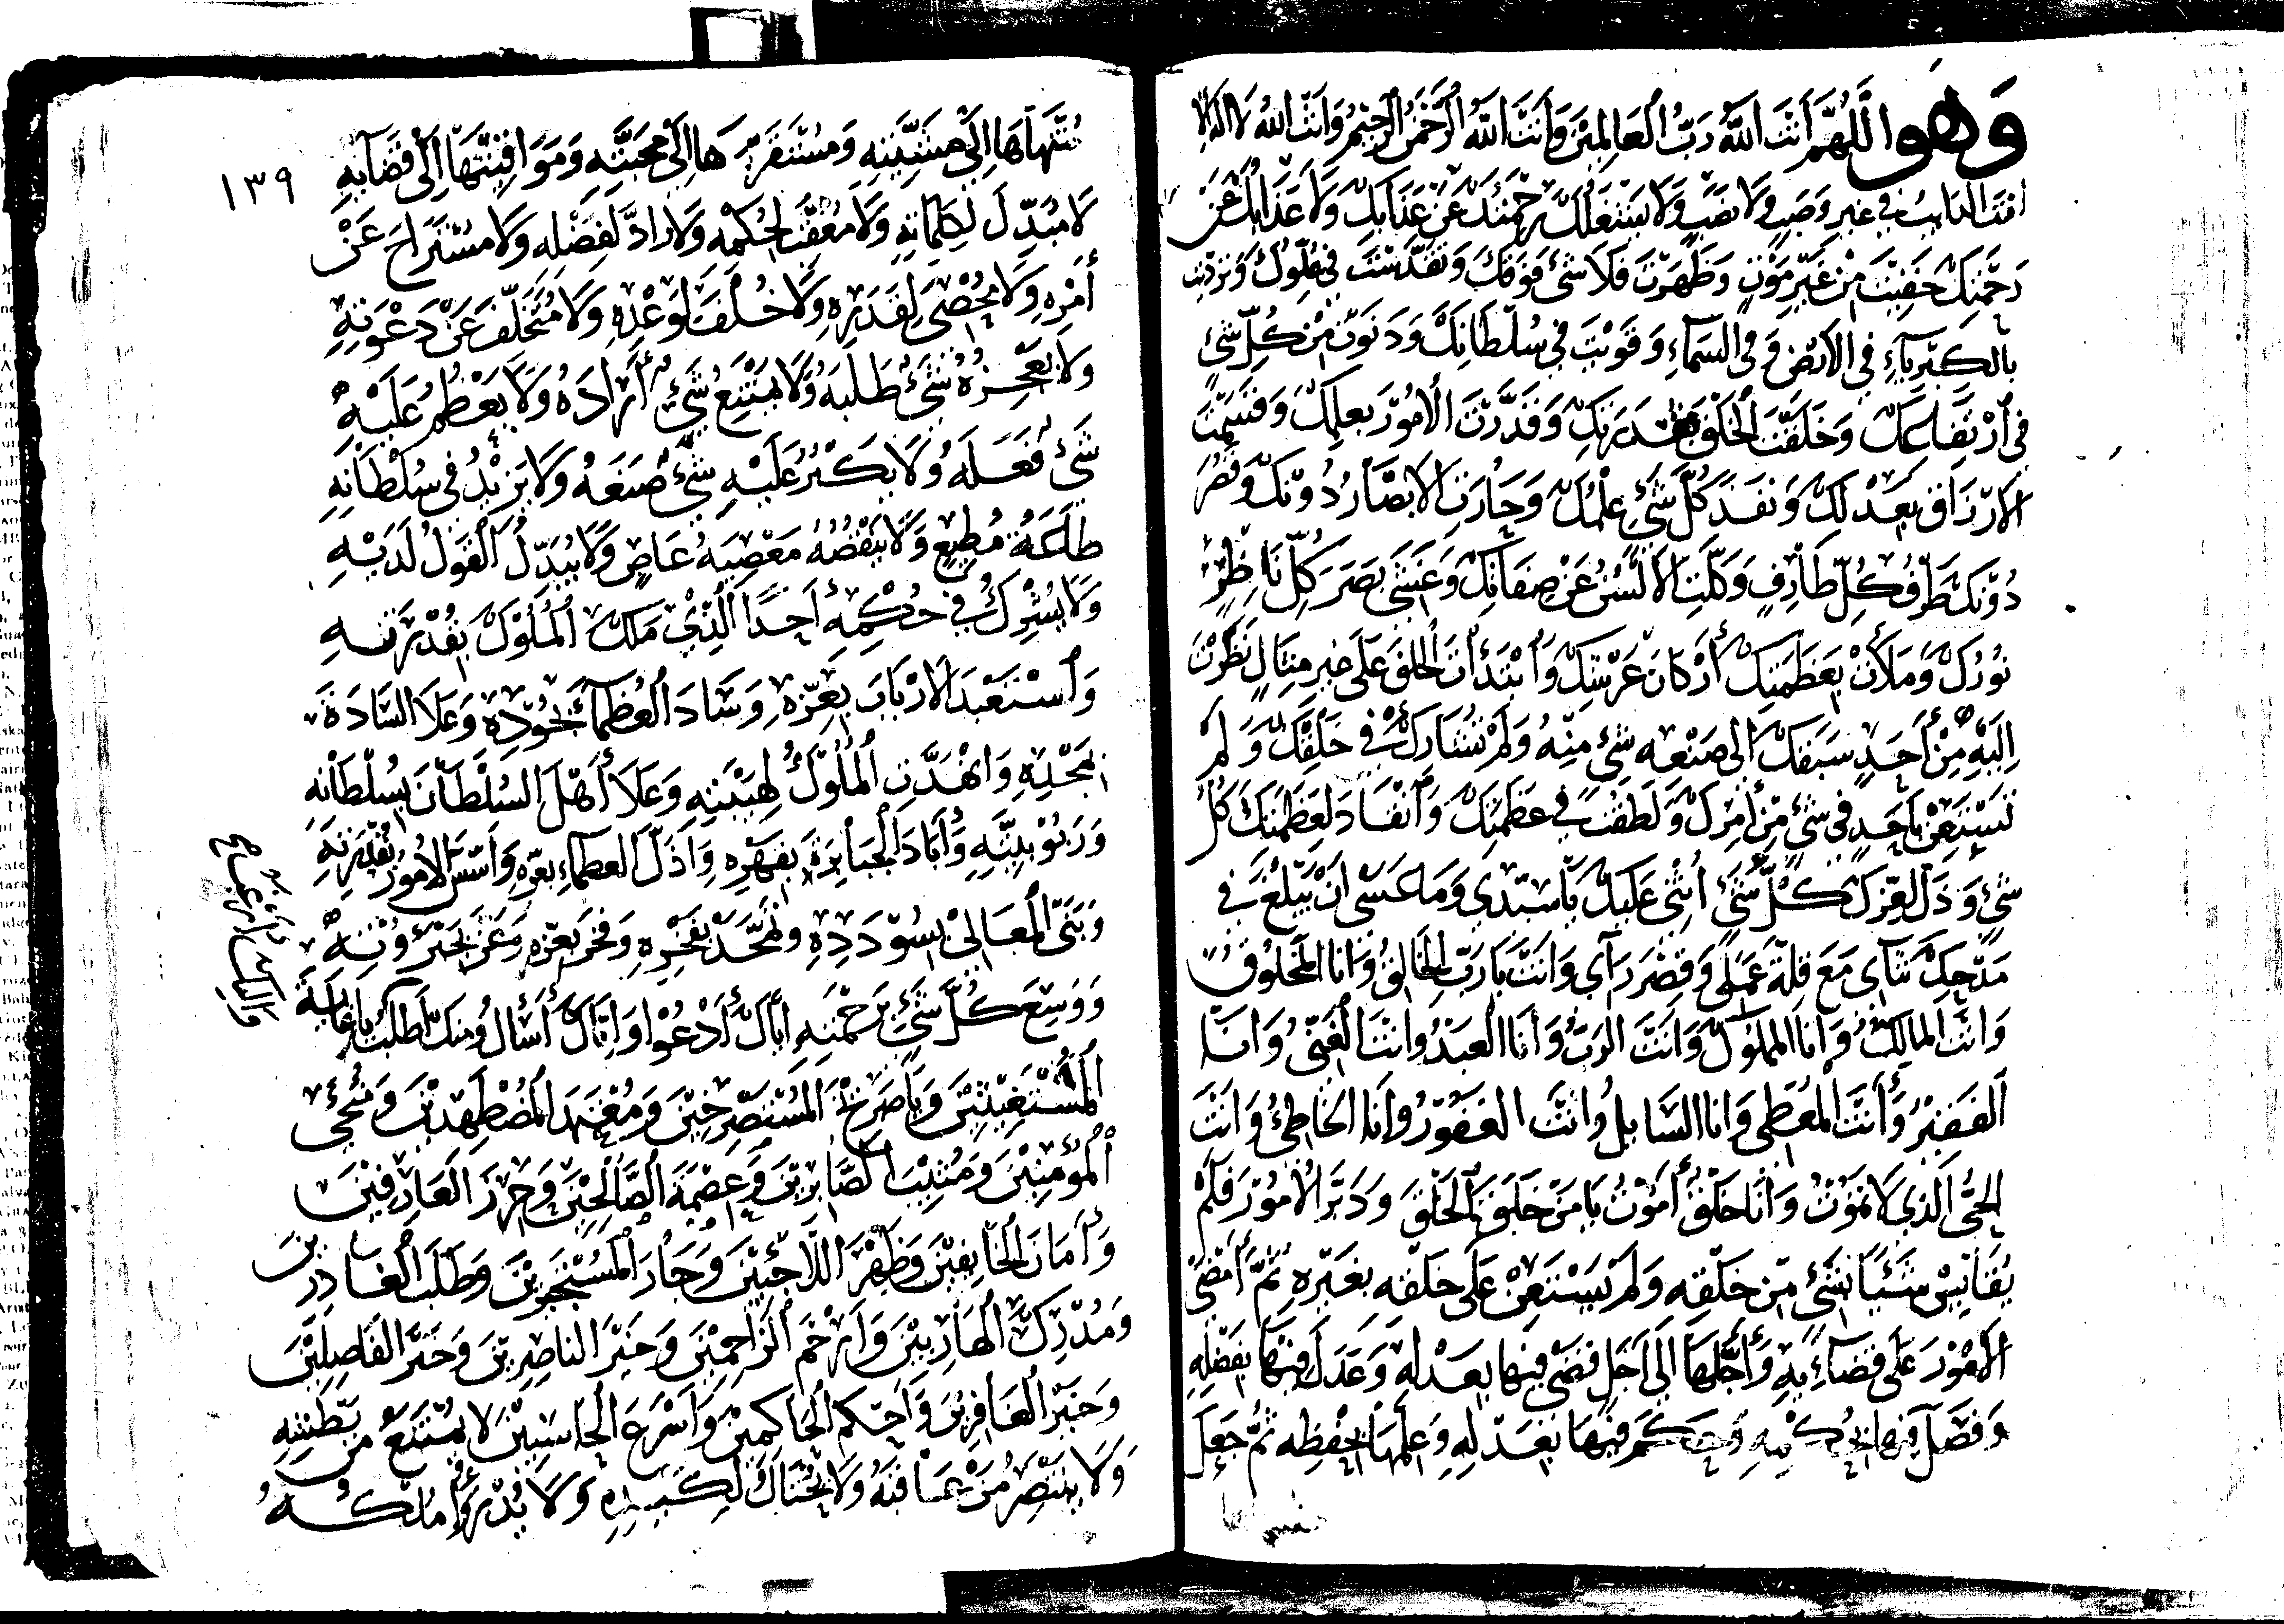 وَهُوَ اللَّهُمَّ أَنْتَ اللَّهُ رَبُّ الْعَالَمِينَ وَأَنْتَ اللَّهُ الرَّحْمَنُ الرَّحِيمُ وَأَنْتَ اللَّهُ لَا إِلَهَ إِلَّا
أَنْتَ الدَّائِبُ فِي غَيْرِ وَصَبٍ وَلَا نَصَبٍ وَلَا يَشْغَلُكَ رَحْمَتُكَ عَنْ عَذَابِكَ وَلَا عَذَابُكَ عَنْ
رَحْمَتِكَ خَفِيتَ مِنْ غَيْرِ مَوْتٍ وَظَهَرْتَ فَلَا شَيْءَ فَوْقَكَ وَتَقَدَّسْتَ فِي عُلُوِّكَ وَتَرَدَّيْتَ
بِالْكِبْرِيَاءِ فِي الْأَرْضِ وَفِي السَّمَاءِ وَقَوِيتَ فِي سُلْطَانِكَ وَدَنَوْتَ مِنْ كُلِّ شَيْءٍ
فِي ارْتِفَاعِكَ وَخَلَقْتَ الْخَلْقَ بِقُدْرَتِكَ وَقَدَّرْتَ الْأُمُورَ بِعِلْمِكَ وَقَسَمْتَ
الْأَرْزَاقَ بِعَدْلِكَ وَنَفَذَ كُلَّ شَيْءٍ عِلْمُكَ وَحَارَتِ الْأَبْصَارُ دُونَكَ وَقَصُرَ
دُونَكَ طَرْفُ كُلِّ طَارِفٍ وَكَلَّتِ الْأَلْسُنُ عَنْ صِفَاتِكَ وَغَشِيَ بَصَرَ كُلِّ نَاظِرٍ
نُورُكَ وَمَلَأْتَ بِعَظَمَتِكَ أَرْكَانَ عَرْشِكَ وَابْتَدَأْتَ الْخَلْقَ عَلَى غَيْرِ مِثَالٍ نَظَرْتَ
إِلَيْهِ مِنْ أَحَدٍ سَبَقَكَ إِلَى صَنْعِهِ شَيْءٍ مِنْهُ وَلَمْ تُشَارَكْ فِي خَلْقِكَ وَلَمْ
تَسْتَعِنْ بِأَحَدٍ فِي شَيْءٍ مِنْ أَمْرِكَ وَلَطُفْتَ فِي عَظَمَتِكَ وَانْقَادَ لِعَظَمَتِكَ كُلُّ
شَيْءٍ وَذَلَّ لِعِزِّكَ كُلُّ شَيْءٍ أُثْنِي عَلَيْكَ يَا سَيِّدِي وَمَا عَسَى أَنْ يَبْلُغَ فِي
مَدْحِكَ ثَنَايَ مَعَ قِلَّةِ عَمَلِي وَقِصَرِ رَأْيِي وَأَنْتَ يَا رَبِّ الْخَالِقُ وَأَنَا الْمَخْلُوقُ
وَأَنْتَ الْمَالِكُ وَأَنَا الْمَمْلُوكُ وَأَنْتَ الرَّبُّ وَأَنَا الْعَبْدُ وَأَنْتَ الْغَنِيُّ وَأَنَا
الْفَقِيرُ وَأَنْتَ الْمُعْطِي وَأَنَا السَّائِلُ وَأَنْتَ الْغَفُورُ وَأَنَا الْخَاطِئُ وَأَنْتَ
الْحَيُّ الَّذِي لَا تَمُوتُ وَأَنَا خَلْقٌ أَمُوتُ يَا مَنْ خَلَقَ الْخَلْقَ وَدَبَّرَ الْأُمُورَ فَلَمْ
يُقَايِسْ شَيْئًا بِشَيْءٍ مِنْ خَلْقِهِ وَلَمْ يَسْتَعِنْ عَلَى خَلْقِهِ بِغَيْرِهِ ثُمَّ أَمْضَى
الْأُمُورَ عَلَى قَضَائِهِ وَأَجَّلَهَا إِلَى أَجَلٍ قَضَى فِيهَا بِعَدْلِهِ وَعَدَلَ فِيهَا بِفَضْلِهِ
وَفَصَلَ فِيهَا بِحُكْمِهِ وَحَكَمَ فِيهَا بِعَدْلِهِ وَعَلِمَهَا بِحِفْظِهِ ثُمَّ جَعَلَ
١٣٩
مُنْتَهَاهَا إِلَى مَشِيَّتِهِ وَمُسْتَقَرَّهَا إِلَى مَحَبَّتِهِ وَمَوَاقِيتَهَا إِلَى قَضَائِهِ
لَا مُبَدِّلَ لِكَلِمَاتِهِ وَلَا مُعَقِّبَ لِحُكْمِهِ وَلَا رَادَّ لِفَضْلِهِ وَلَا مُسْتَرَاحَ عَنْ
أَمْرِهِ وَلَا مَحِيصَ لِقَدَرِهِ وَلَا خُلْفَ لِوَعْدِهِ وَلَا مُتَخَلِّفَ عَنْ دَعْوَتِهِ
وَلَا يُعْجِزُهُ شَيْءٌ طَلَبَهُ وَلَا يَمْتَنِعُ شَيْءٌ أَرَادَهُ وَلَا يَعْظُمُ عَلَيْهِ
شَيْءٌ فَعَلَهُ وَلَا يَكْبُرُ عَلَيْهِ شَيْءٌ صَنَعَهُ وَلَا يَزِيدُ فِي سُلْطَانِهِ
طَاعَةُ مُطِيعٍ وَلَا يَنْقُصُهُ مَعْصِيَةُ عَاصٍ وَلَا يُبَدَّلُ الْقَوْلُ لَدَيْهِ
وَلَا يُشْرِكُ فِي حُكْمِهِ أَحَدًا الَّذِي مَلَكَ الْمُلُوكَ بِقُدْرَتِهِ
وَاسْتَعْبَدَ الْأَرْبَابَ بِعِزِّهِ وَسَادَ الْعُظَمَاءَ بِجُودِهِ وَعَلَا السَّادَةَ
بِمَجْدِهِ وَانْهَدَّتِ الْمُلُوكُ لِهَيْبَتِهِ وَعَلَا أَهْلَ السُّلْطَانِ بِسُلْطَانِهِ
وَرُبُوبِيَّتِهِ وَأَبَادَ الْجَبَابِرَةَ بِقَهْرِهِ وَأَذَلَّ الْعُظَمَاءَ بِعِزِّهِ وَأَسَّسَ الْأُمُورَ بِقُدْرَتِهِ
وَبَنَى الْمَعَالِيَ بِسُؤْدَدِهِ وَتَمَجَّدَ بِفَخْرِهِ وَفَخَرَ بِعِزِّهِ وَعَزَّ بِجَبَرُوتِهِ
وَوَسِعَ كُلَّ شَيْءٍ بِرَحْمَتِهِ إِيَّاكَ أَدْعُو وَإِيَّاكَ أَسْأَلُ وَمِنْكَ أَطْلُبُ يَا غَايَةَ
الْمُسْتَغِيثِينَ وَيَا صَرِيخَ الْمُسْتَصْرِخِينَ وَمُعْتَمَدَ الْمُضْطَهَدِينَ وَمُنْجِيَ
الْمُؤْمِنِينَ وَمُثِيبَ الصَّابِرِينَ وَعِصْمَةَ الصَّالِحِينَ وَحِرْزَ الْعَارِفِينَ
وَأَمَانَ الْخَائِفِينَ وَظَهْرَ اللَّاجِئِينَ وَجَارَ الْمُسْتَجِيرِينَ وَطَلَبَ الْغَادِرِينَ
وَمُدْرِكَ الْهَارِبِينَ وَأَرْحَمَ الرَّاحِمِينَ وَخَيْرَ النَّاصِرِينَ وَخَيْرَ الْفَاصِلِينَ
وَخَيْرَ الْغَافِرِينَ وَأَحْكَمَ الْحَاكِمِينَ وَأَسْرَعَ الْحَاسِبِينَ لَا يَمْتَنِعُ مِنْ بَطْشِهِ
وَلَا يَنْتَصِرُ مَنْ عَاقَبَهُ وَلَا يُحْتَالُ لِكَيْدِهِ وَلَا يُدْرَكُ